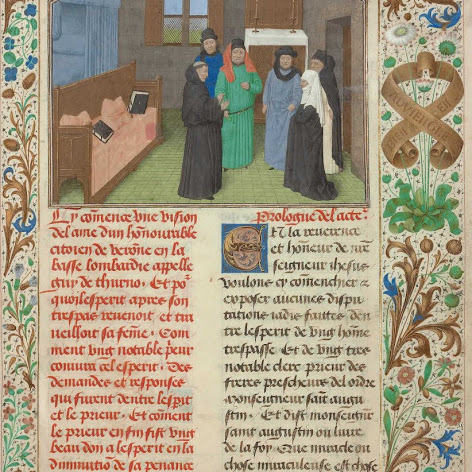 Cy cõmence vne vision
del ame dun honnourable
citoien de veronne en la
basse lombardie appelle
guy de thurno. Et po͛
quoy lesperit apres son
trespas revenoit et tra
ueilloit sa feme. Com
ment vng notable p̃eur
coniura cel esperit. Des
demandes et responses
qui furent dentre lesperit
et le prieur. Et cõment
le prieur en fin fist vng
beau don a lesperit en la
diminutio de sa penance
Prologue del acte͛.
Et la reuerence
et honeur de nr̃e
seigneur ihesus
voulons cy cõmenchier a
exposer aucunes dispu
tations iadis faittes den
tre lesperit de vng hõme
trespasse Et de vng tres
notable clerc prieur des
freres prescheurs del ordre
monseigneur saint augu
stin. Et dist monseignr̃
saint augustin ou liure
de la foy. Que miracle ou
chose miraculeuse est cho